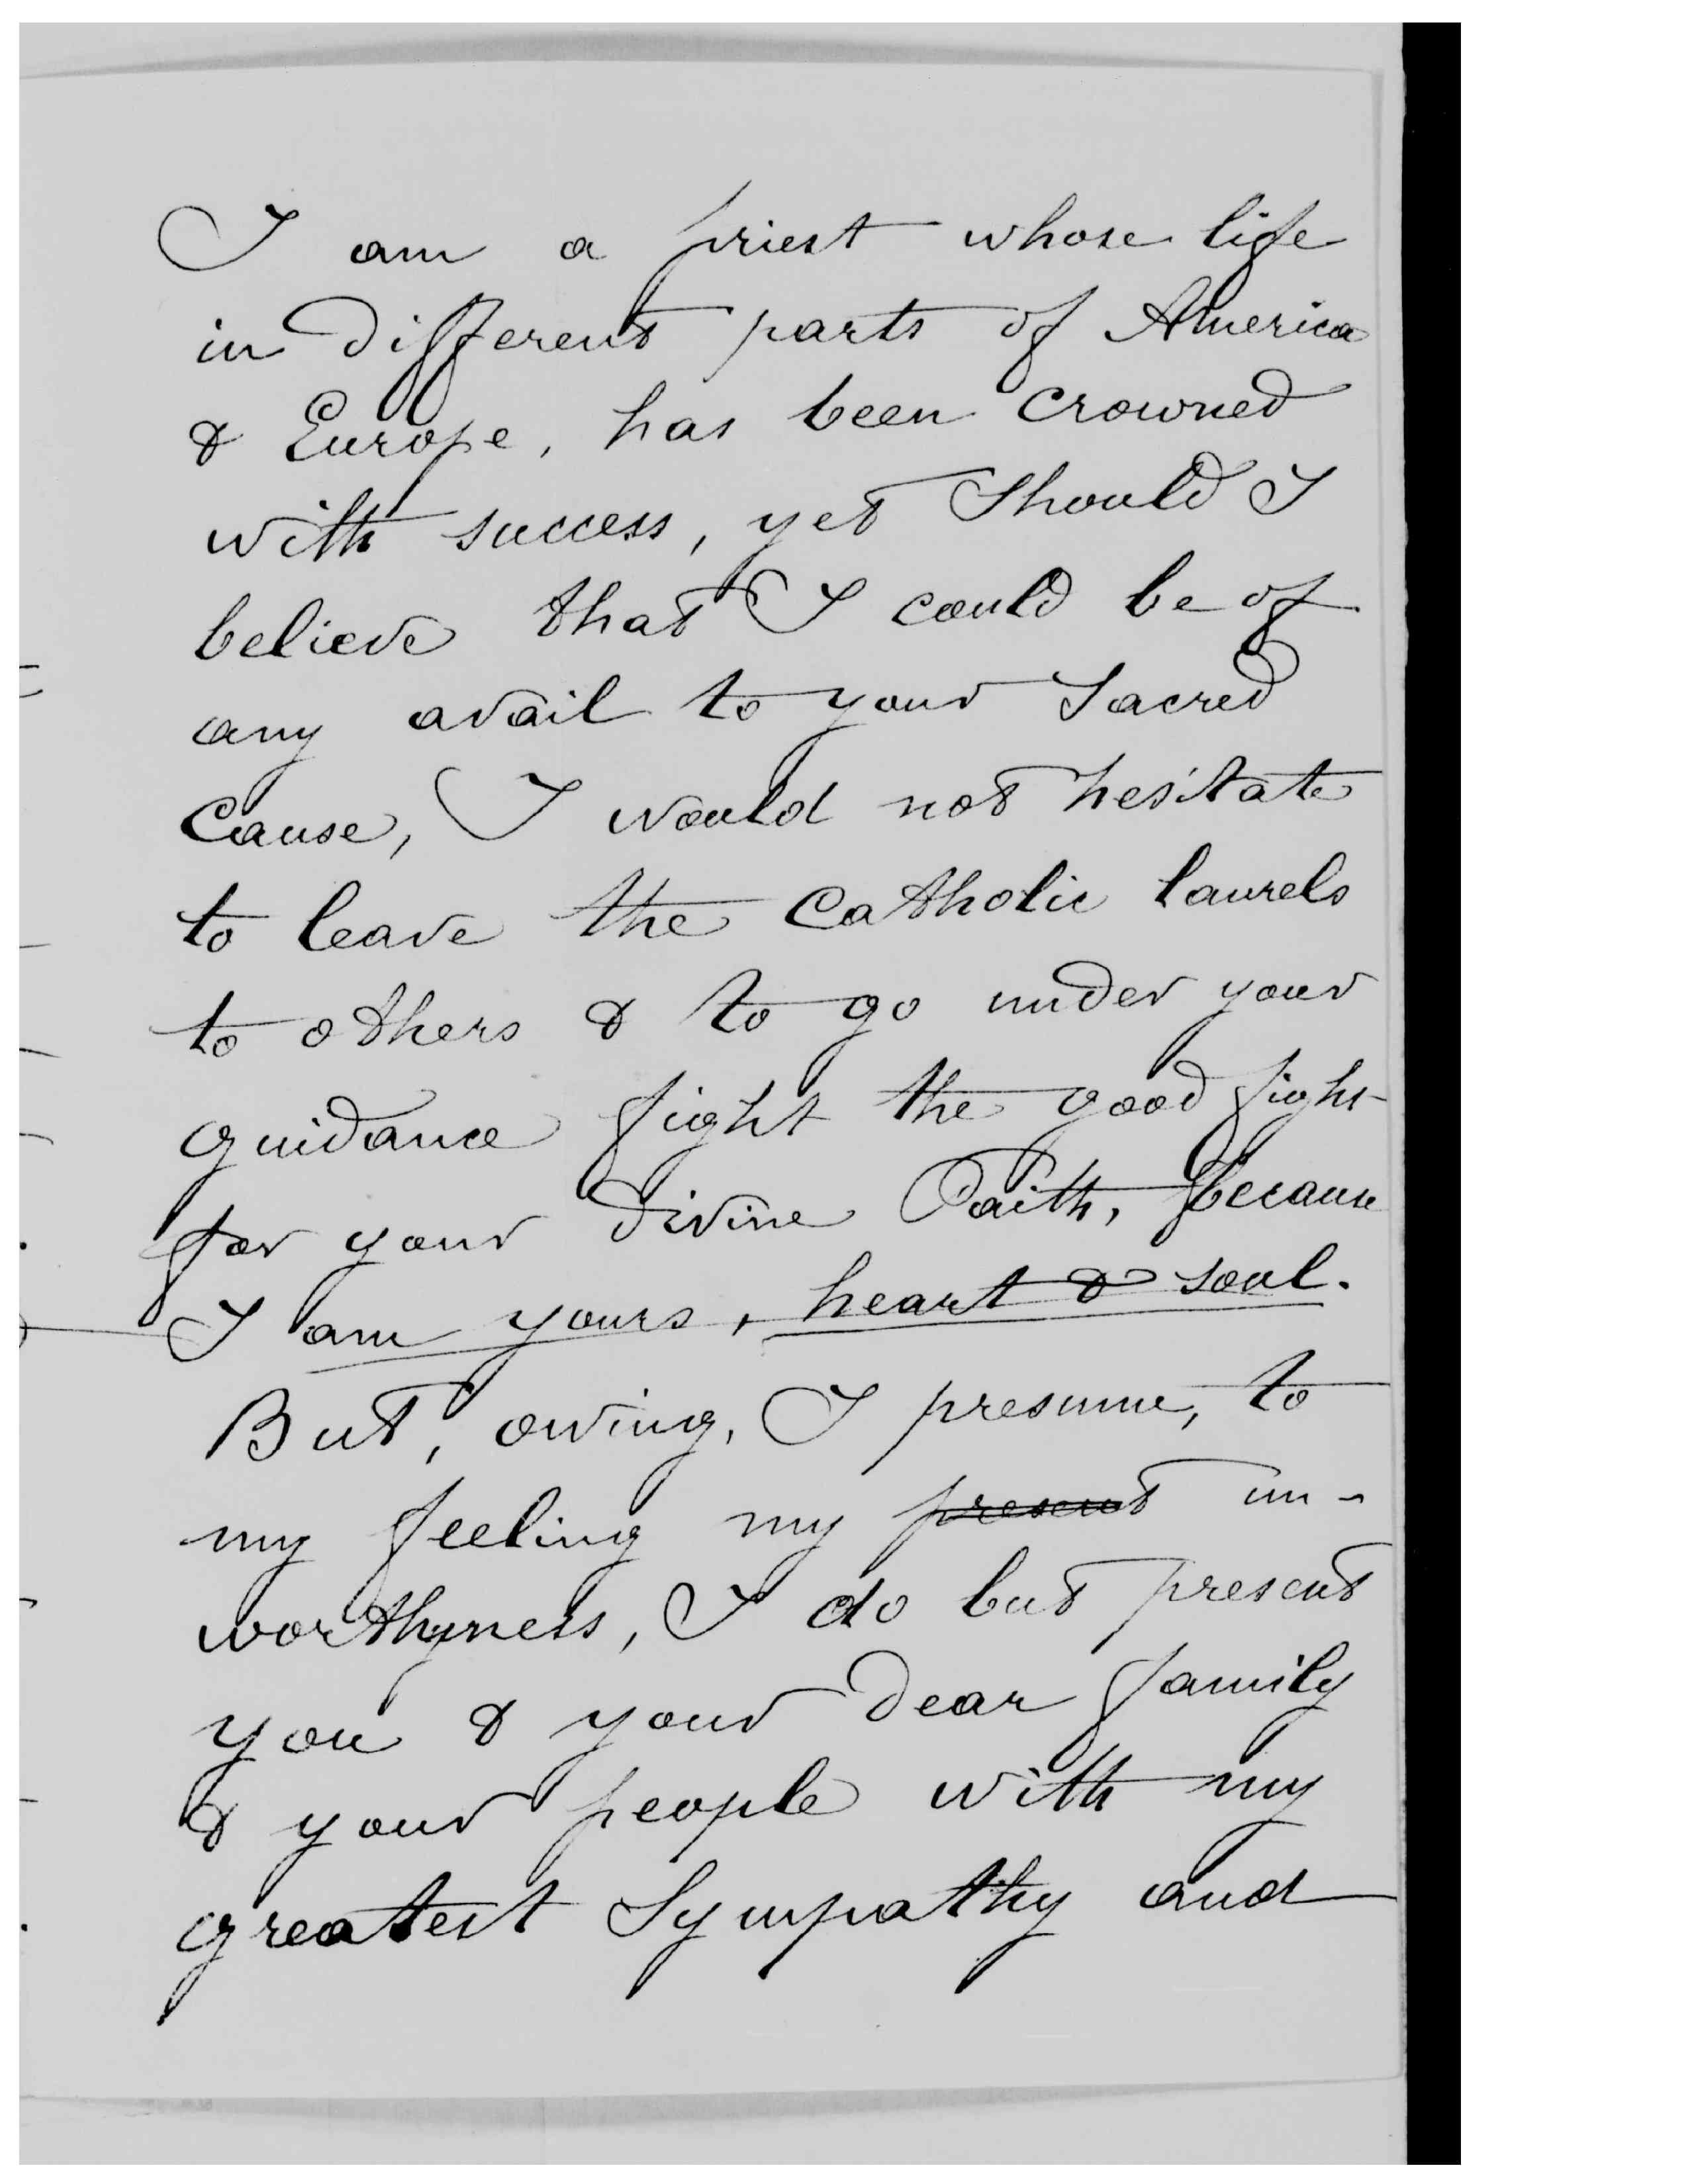 I am a priest whose life
in different parts of America
& Europe, has been crowned
with success, yet should I
believe that I could be of
any avail to your Sacred
Cause, I would not hesitate
to leave the Catholic laurels
to others & to go under your
guidance fight the good fight
for your divine Faith, because
I am yours, heart & soul.
But, owing, I presume, to
my feeling my present un-
worthyness, I do but present
you & your dear family
& your people with my
greatest Sympathy and